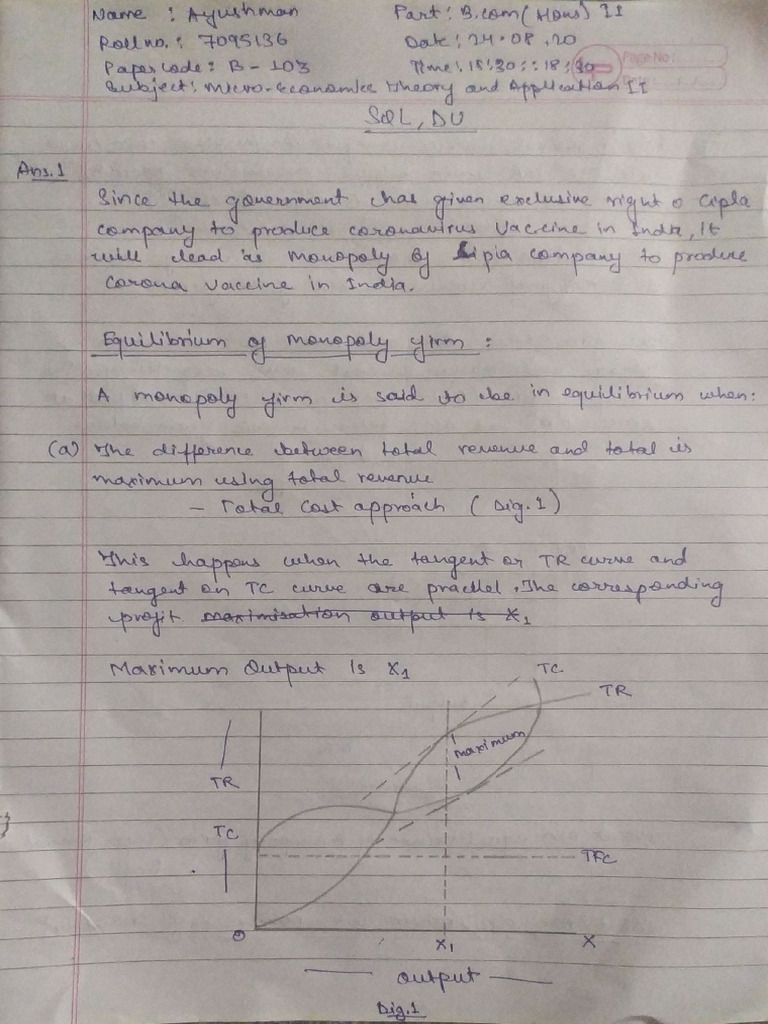 Name : Ayushman Part : B.com (Hons) II
Roll no. : 7095136 Date : 24.08.20
Paper code : B - 103 Time : 15:30 :: 18:30 Page No:
Subject : Micro-Economics Theory and Application II
SOL, DU
Ans.1
Since the government has given exclusive right o Cipla
company to produce coronavirus vaccine in India, It
will lead as monopoly of Lipia company to produce
corona vaccine in India.
Equilibrium of monopoly firm :
A monopoly firm is said to be in equilibrium when:
(a) The difference between total revenue and total is
maximum using total revenue
- Total Cost approach (Dig.1)
This happens when the tangent or TR curve and
tangent on TC curve are pracllel. The corresponding
profit maximisation output is X1
Maximum Output is X1
TC
TR
maximum
TR
TC
TFC
O X1 X
output
Dig.1